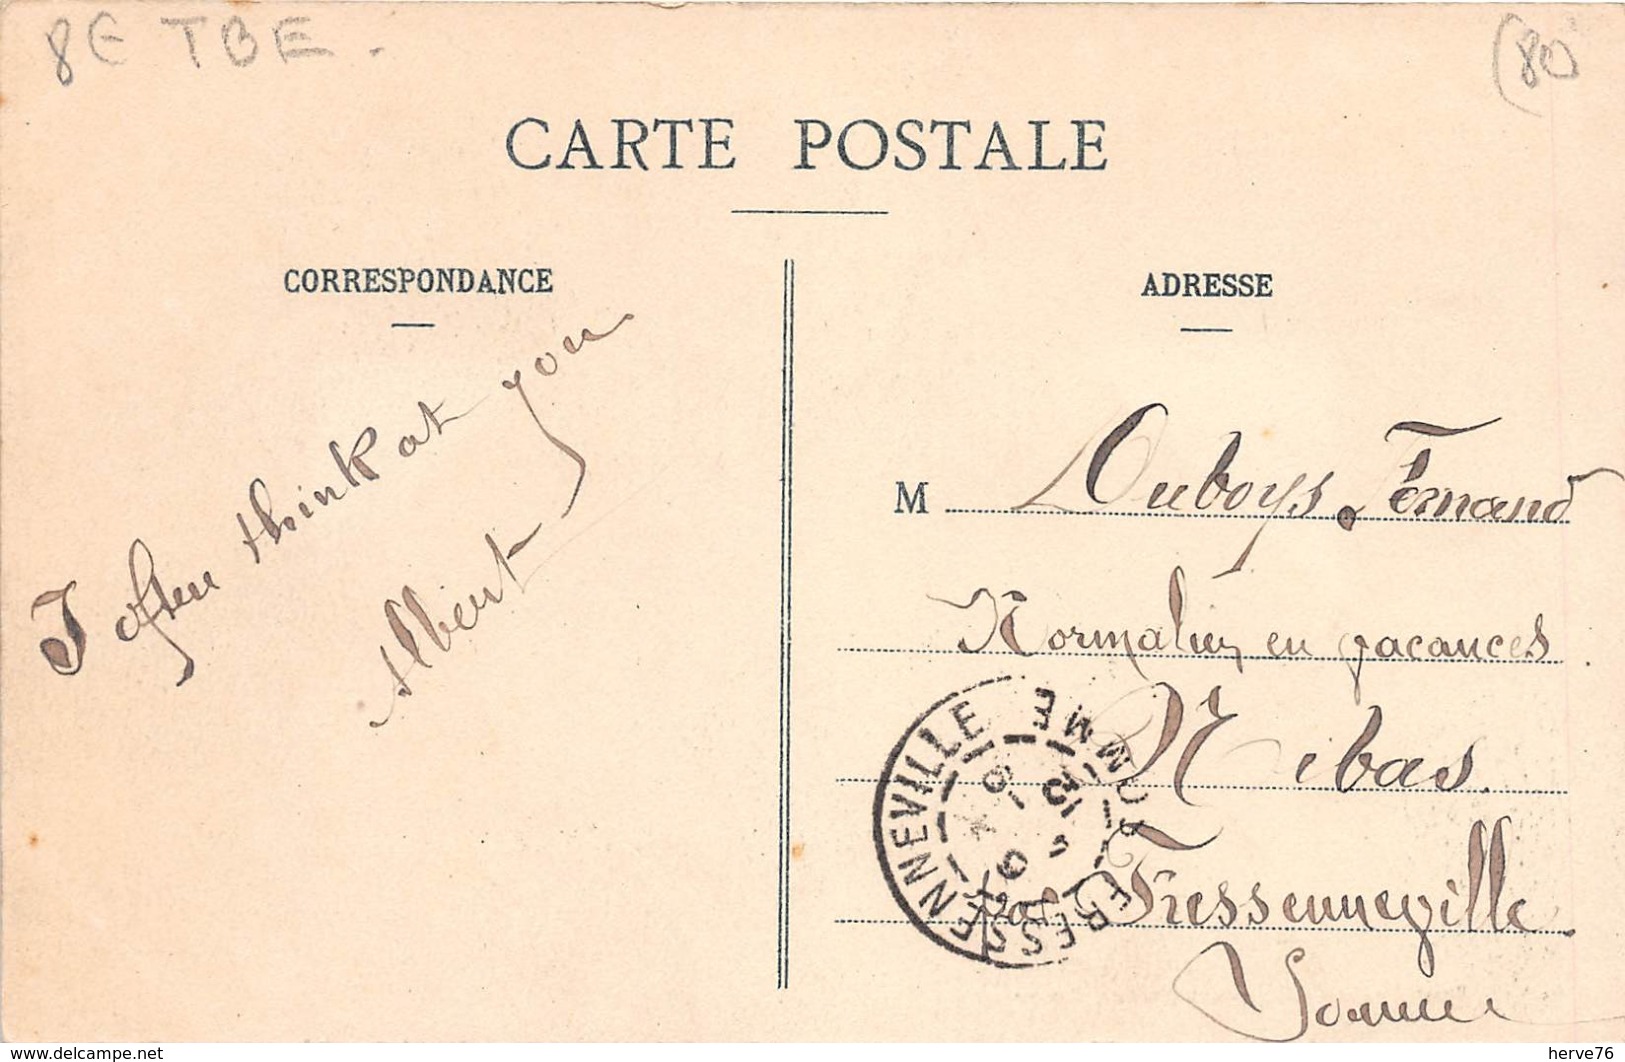 8E TBE -
(80
CARTE POSTALE
CORRESPONDANCE
I often think at you
Albert
ADRESSE
M Duboys. Fernand
Normalien en vacances
Nibas.
par Fressenneville.
Somme
FRESSENNEVILLE SOMME
www.delcampe.net
herve76